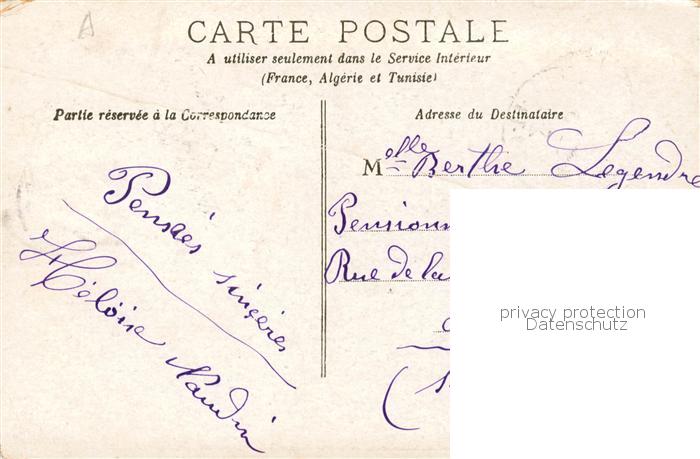 A
CARTE POSTALE
A utiliser seulement dans le Service Intérieur
(France, Algérie et Tunisie)
Partie réservée à la Correspondance
Pensées sincères
Héloïse Naudin
Adresse du Destinataire
Melle Berthe Legendre
Rue de la
privacy protection
Datenschutz